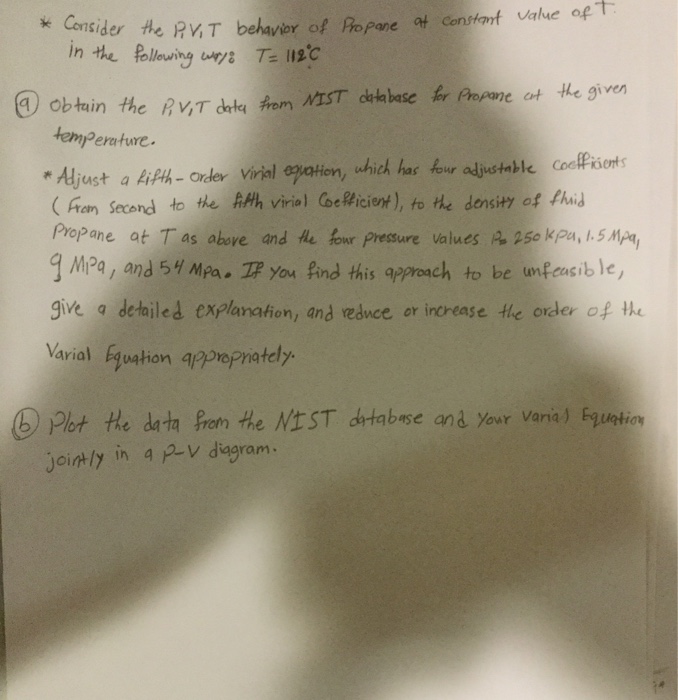 * Consider the P,V,T behavior of Propane at constant value of T.
in the following way: T= 112°C
(a) obtain the P,V,T data from NIST database for Propane at the given
temperature.
* Adjust a fifth-order Virial equation, which has four adjustable coefficients
(From second to the fifth virial Coefficient), to the density of fluid
Propane at T as above and the four pressure values P= 250 kpa, 1.5 Mpa,
9 MPa, and 54 Mpa. If you find this approach to be unfeasible,
give a detailed explanation, and reduce or increase the order of the
Varial Equation appropriately.
(b) Plot the data from the NIST database and your Varial Equation
jointly in a P-V diagram.